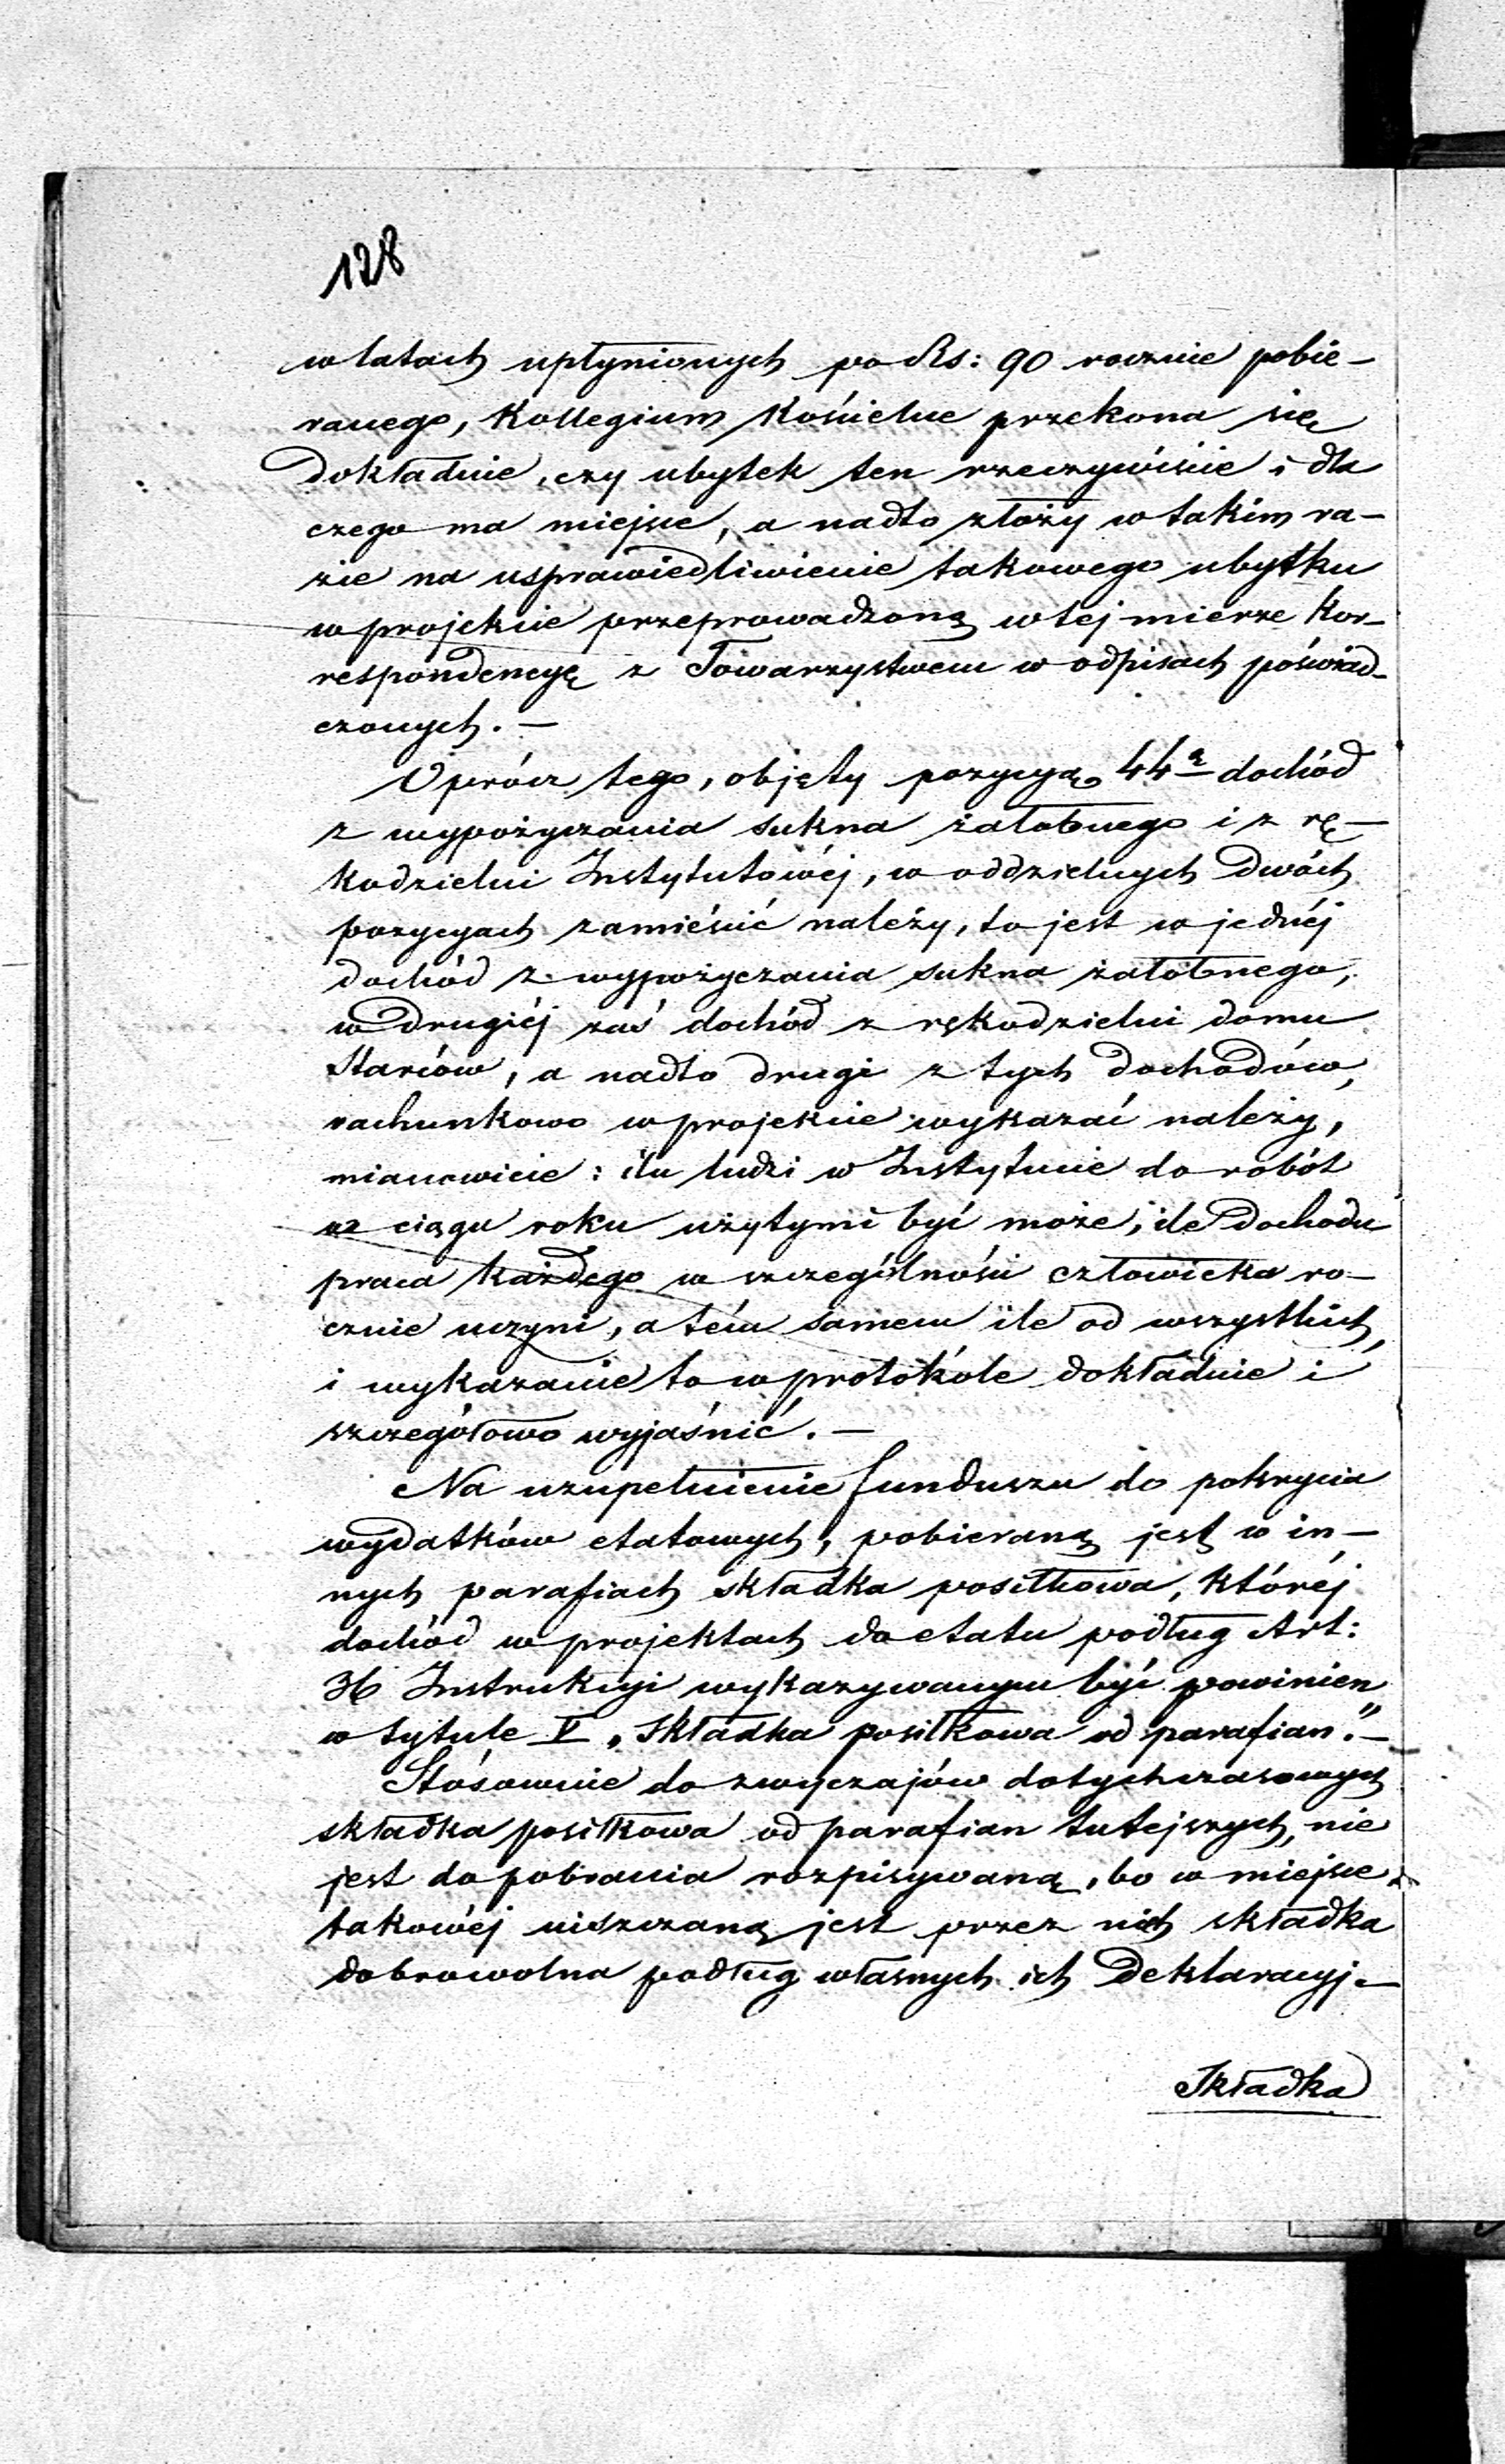 128
w latach upłynionych po Rs: 90 rocznie pobie-
ranego, Kollegium Kościelne przekona się
dokładnie, czy ubytek ten rzeczywiście i dla
czego ma miejsce, a nadto złoży w takim ra-
zie na usprawiedliwienie takowego ubytku
w projekcie przeprowadzoną w tej mierze kor-
respondencyę z Towarzystwem w odpisach poświad-
czonych. —
Oprócz tego, objęty pozycyą 44ą dochód
z wypożyczania sukna żałobnego i z rę-
kodzielni Instytutowéj, w oddzielnych dwóch
pozycyach zamieścić należy, to jest w jednéj
dochód z wypożyczania sukna żałobnego,
w drugiéj zaś dochód z rękodzielni domu
Starców, a nadto drugi z tych dochodów,
rachunkowo w projekcie wykazać należy,
mianowicie: ilu ludzi w Instytucie do robót
w ciągu roku użytymi być może, ile dochodu
praca każdego w szczególności człowieka ro-
cznie uczyni, a tém samem ile od wszystkich,
i wykazanie to w protokóle dokładnie i
szczegółowo wyjaśnić. —
Na uzupełnienie funduszu do pokrycia
wydatków etatowych, pobieraną jest w in-
nych parafiach składka posiłkowa, któréj
dochód w projektach do etatu podług Art:
36 Instrukcyi wykazywanym być powinien
w tytule V „Składka posiłkowa od parafian." —
Stósownie do zwyczajów dotychczasowych
składka posiłkowa od parafian tutejszych, nie
jest do pobrania rozpisywaną, bo w miejsce
takowéj uiszczaną jest przez nich składka
dobrowolna podług własnych ich Deklaracyj. —
Składka